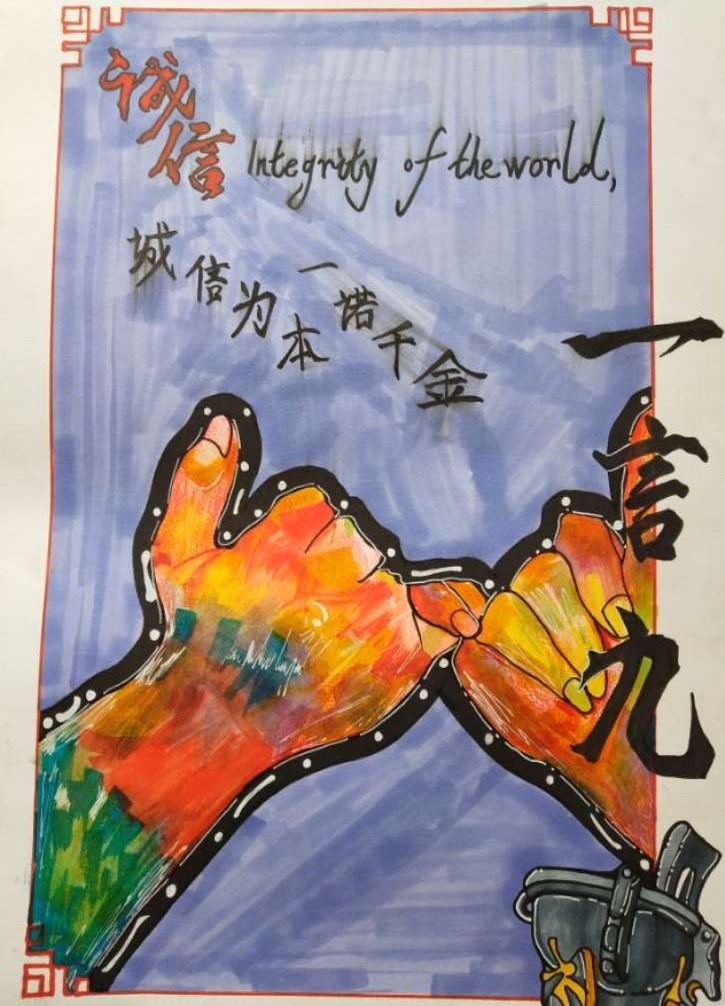 诚信
Integrity of the world,
城信为本
一诺千金
一言九